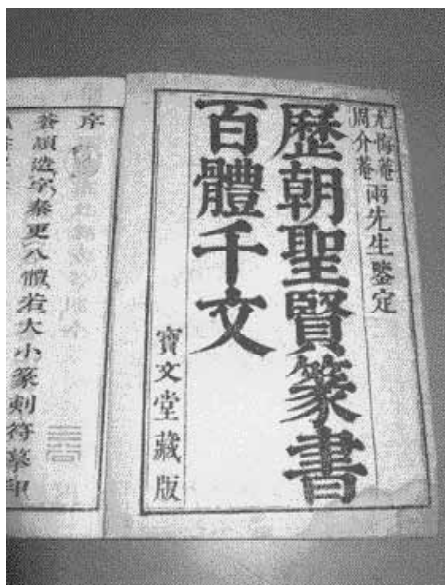 尤悔菴
周介菴
兩先生鑒定
歷朝聖賢篆書
百體千文
寶文堂藏版
序
蒼頡造字秦更八體若大小篆刻符摹印